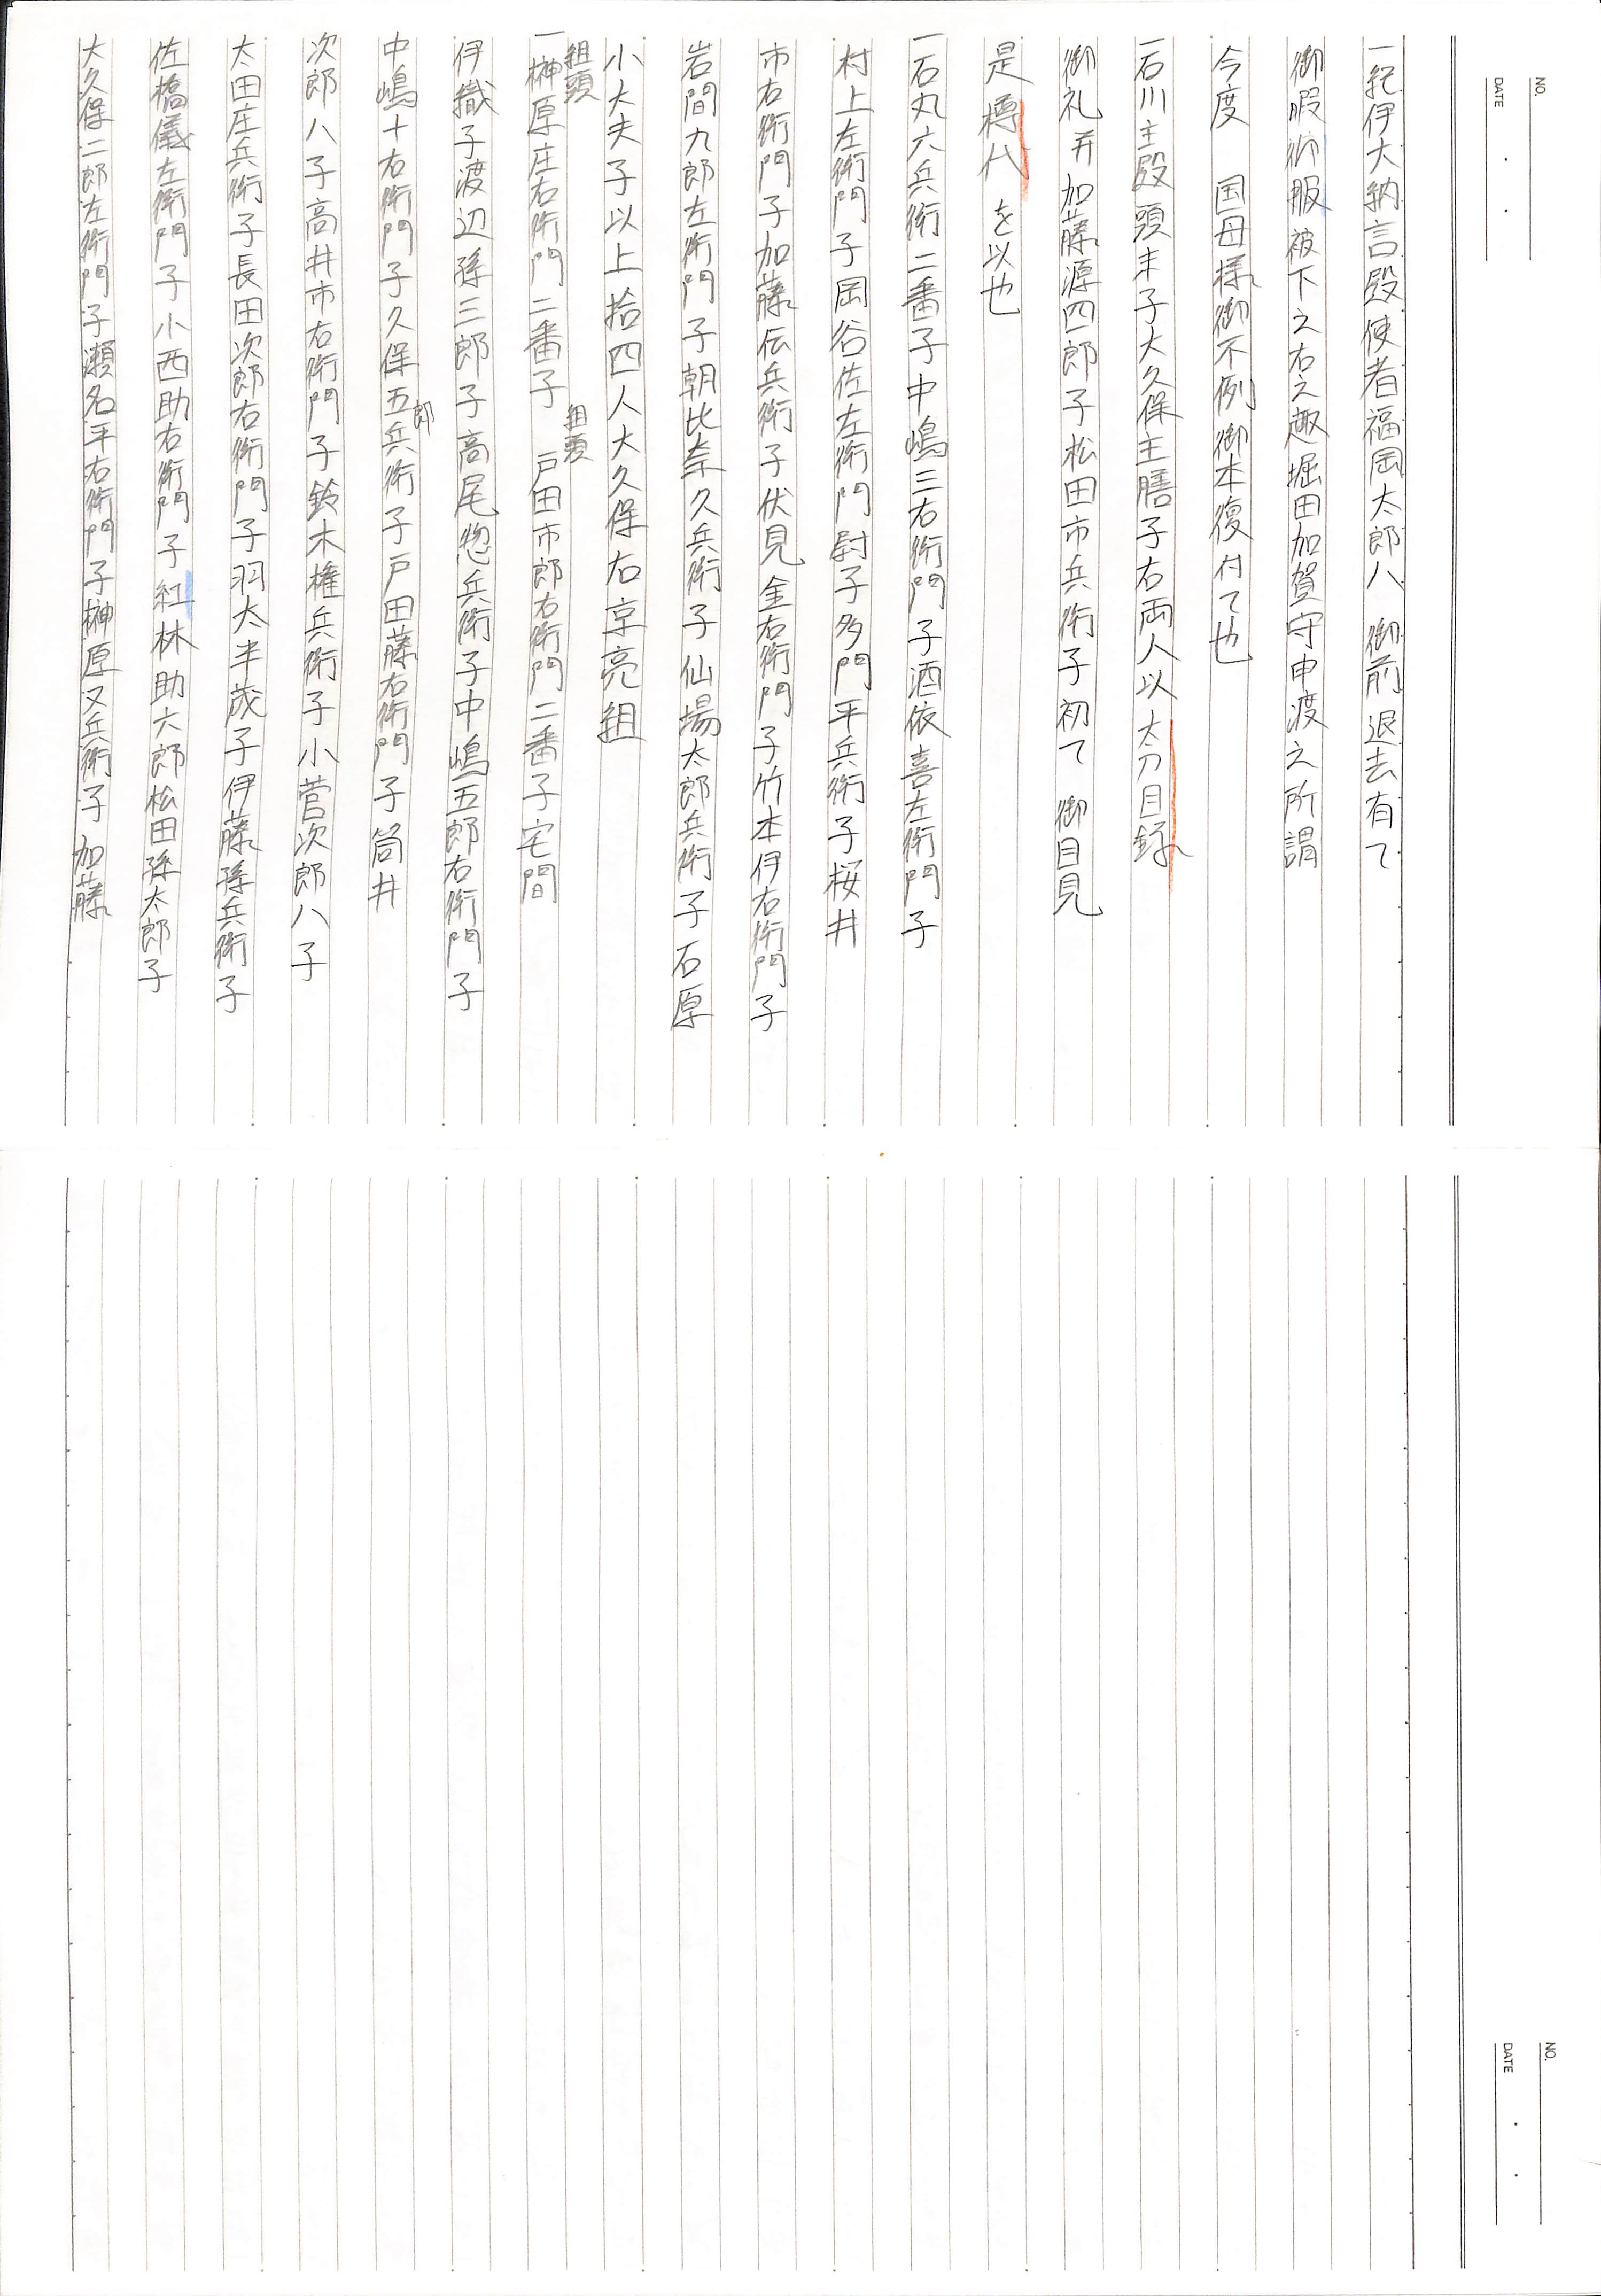 NO.
DATE
一紀伊大納言殿使者福岡太郎八　御前退去有て
御暇御服被下之右之趣堀田加賀守申渡之所謂
今度　国母様御不例御本復付て也
一石川主殿頭末子大久保主膳子右両人以太刀目録
御礼并加藤源四郎子松田市兵衛子初て　御目見
是樽代を以也
一石丸六兵衛二番子中嶋三右衛門子酒依喜左衛門子
村上左衛門子岡谷佐左衛門尉子多門平兵衛子桜井
市右衛門子加藤伝兵衛子伏見金右衛門子竹本伊右衛門子
岩間九郎左衛門子朝比奈久兵衛子仙場太郎兵衛子石原
小大夫子以上拾四人大久保右京亮組
組頭　組頭
一榊原庄右衛門二番子　戸田市郎右衛門二番子宅間
伊織子渡辺孫三郎子高尾惣兵衛子中嶋五郎右衛門子
郎
中嶋十右衛門子久保五兵衛子戸田藤右衛門子筒井
次郎八子高井市右衛門子鈴木権兵衛子小菅次郎八子
太田庄兵衛子長田次郎右衛門子羽太半成子伊藤孫兵衛子
佐橋儀左衛門子小西助右衛門子紅林助六郎松田孫太郎子
大久保二郎左衛門子瀬名平右衛門子榊原又兵衛子加藤
NO.
DATE